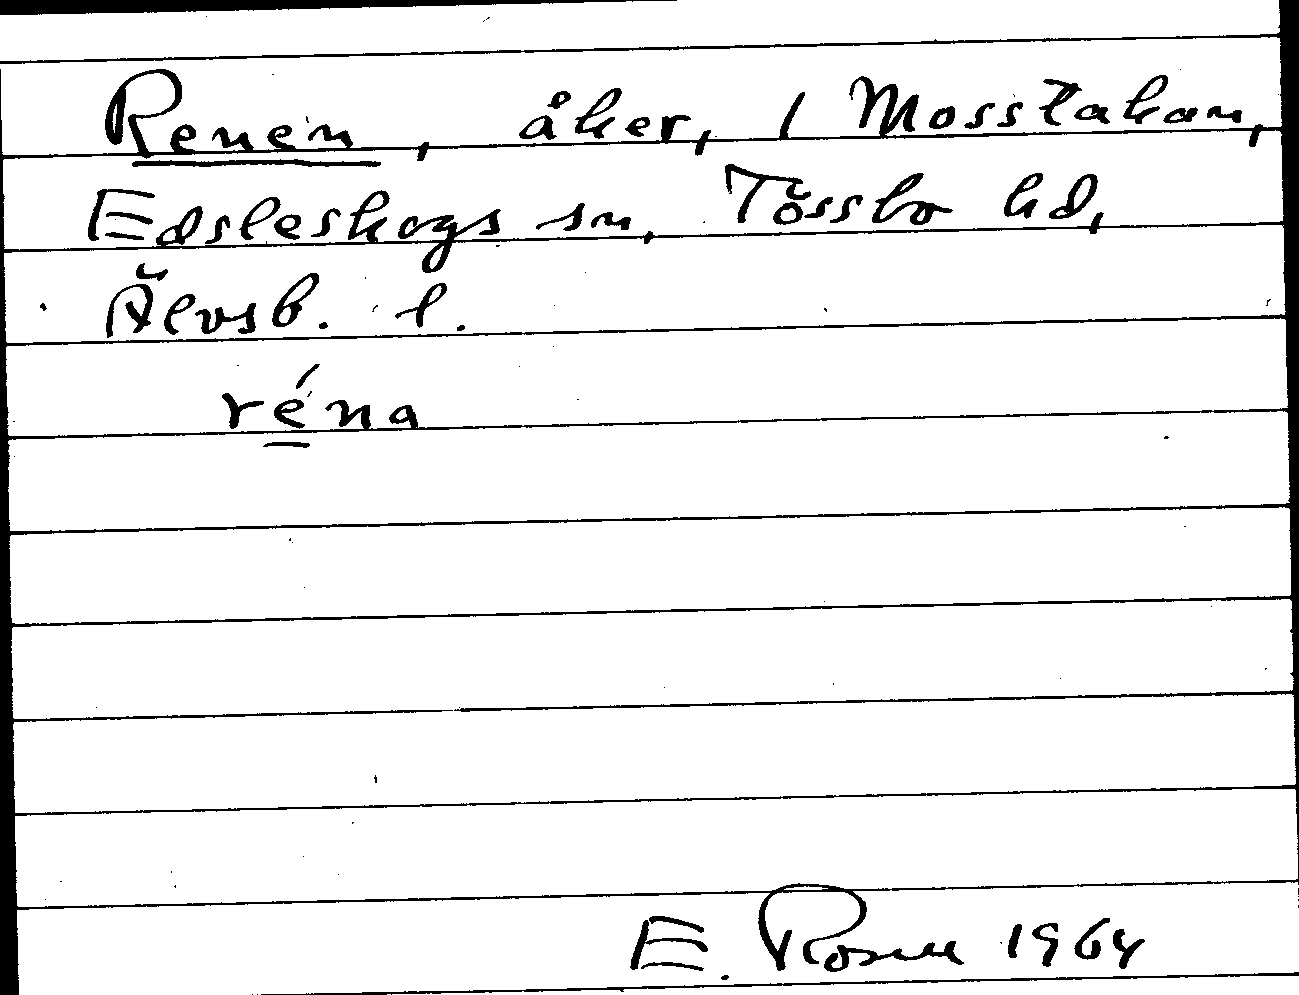 Renen, åker, 1 Mosstakan,
Edsleskogs sn, Tössbo hd,
Älvsb. l.
réna
E. Rosén 1964